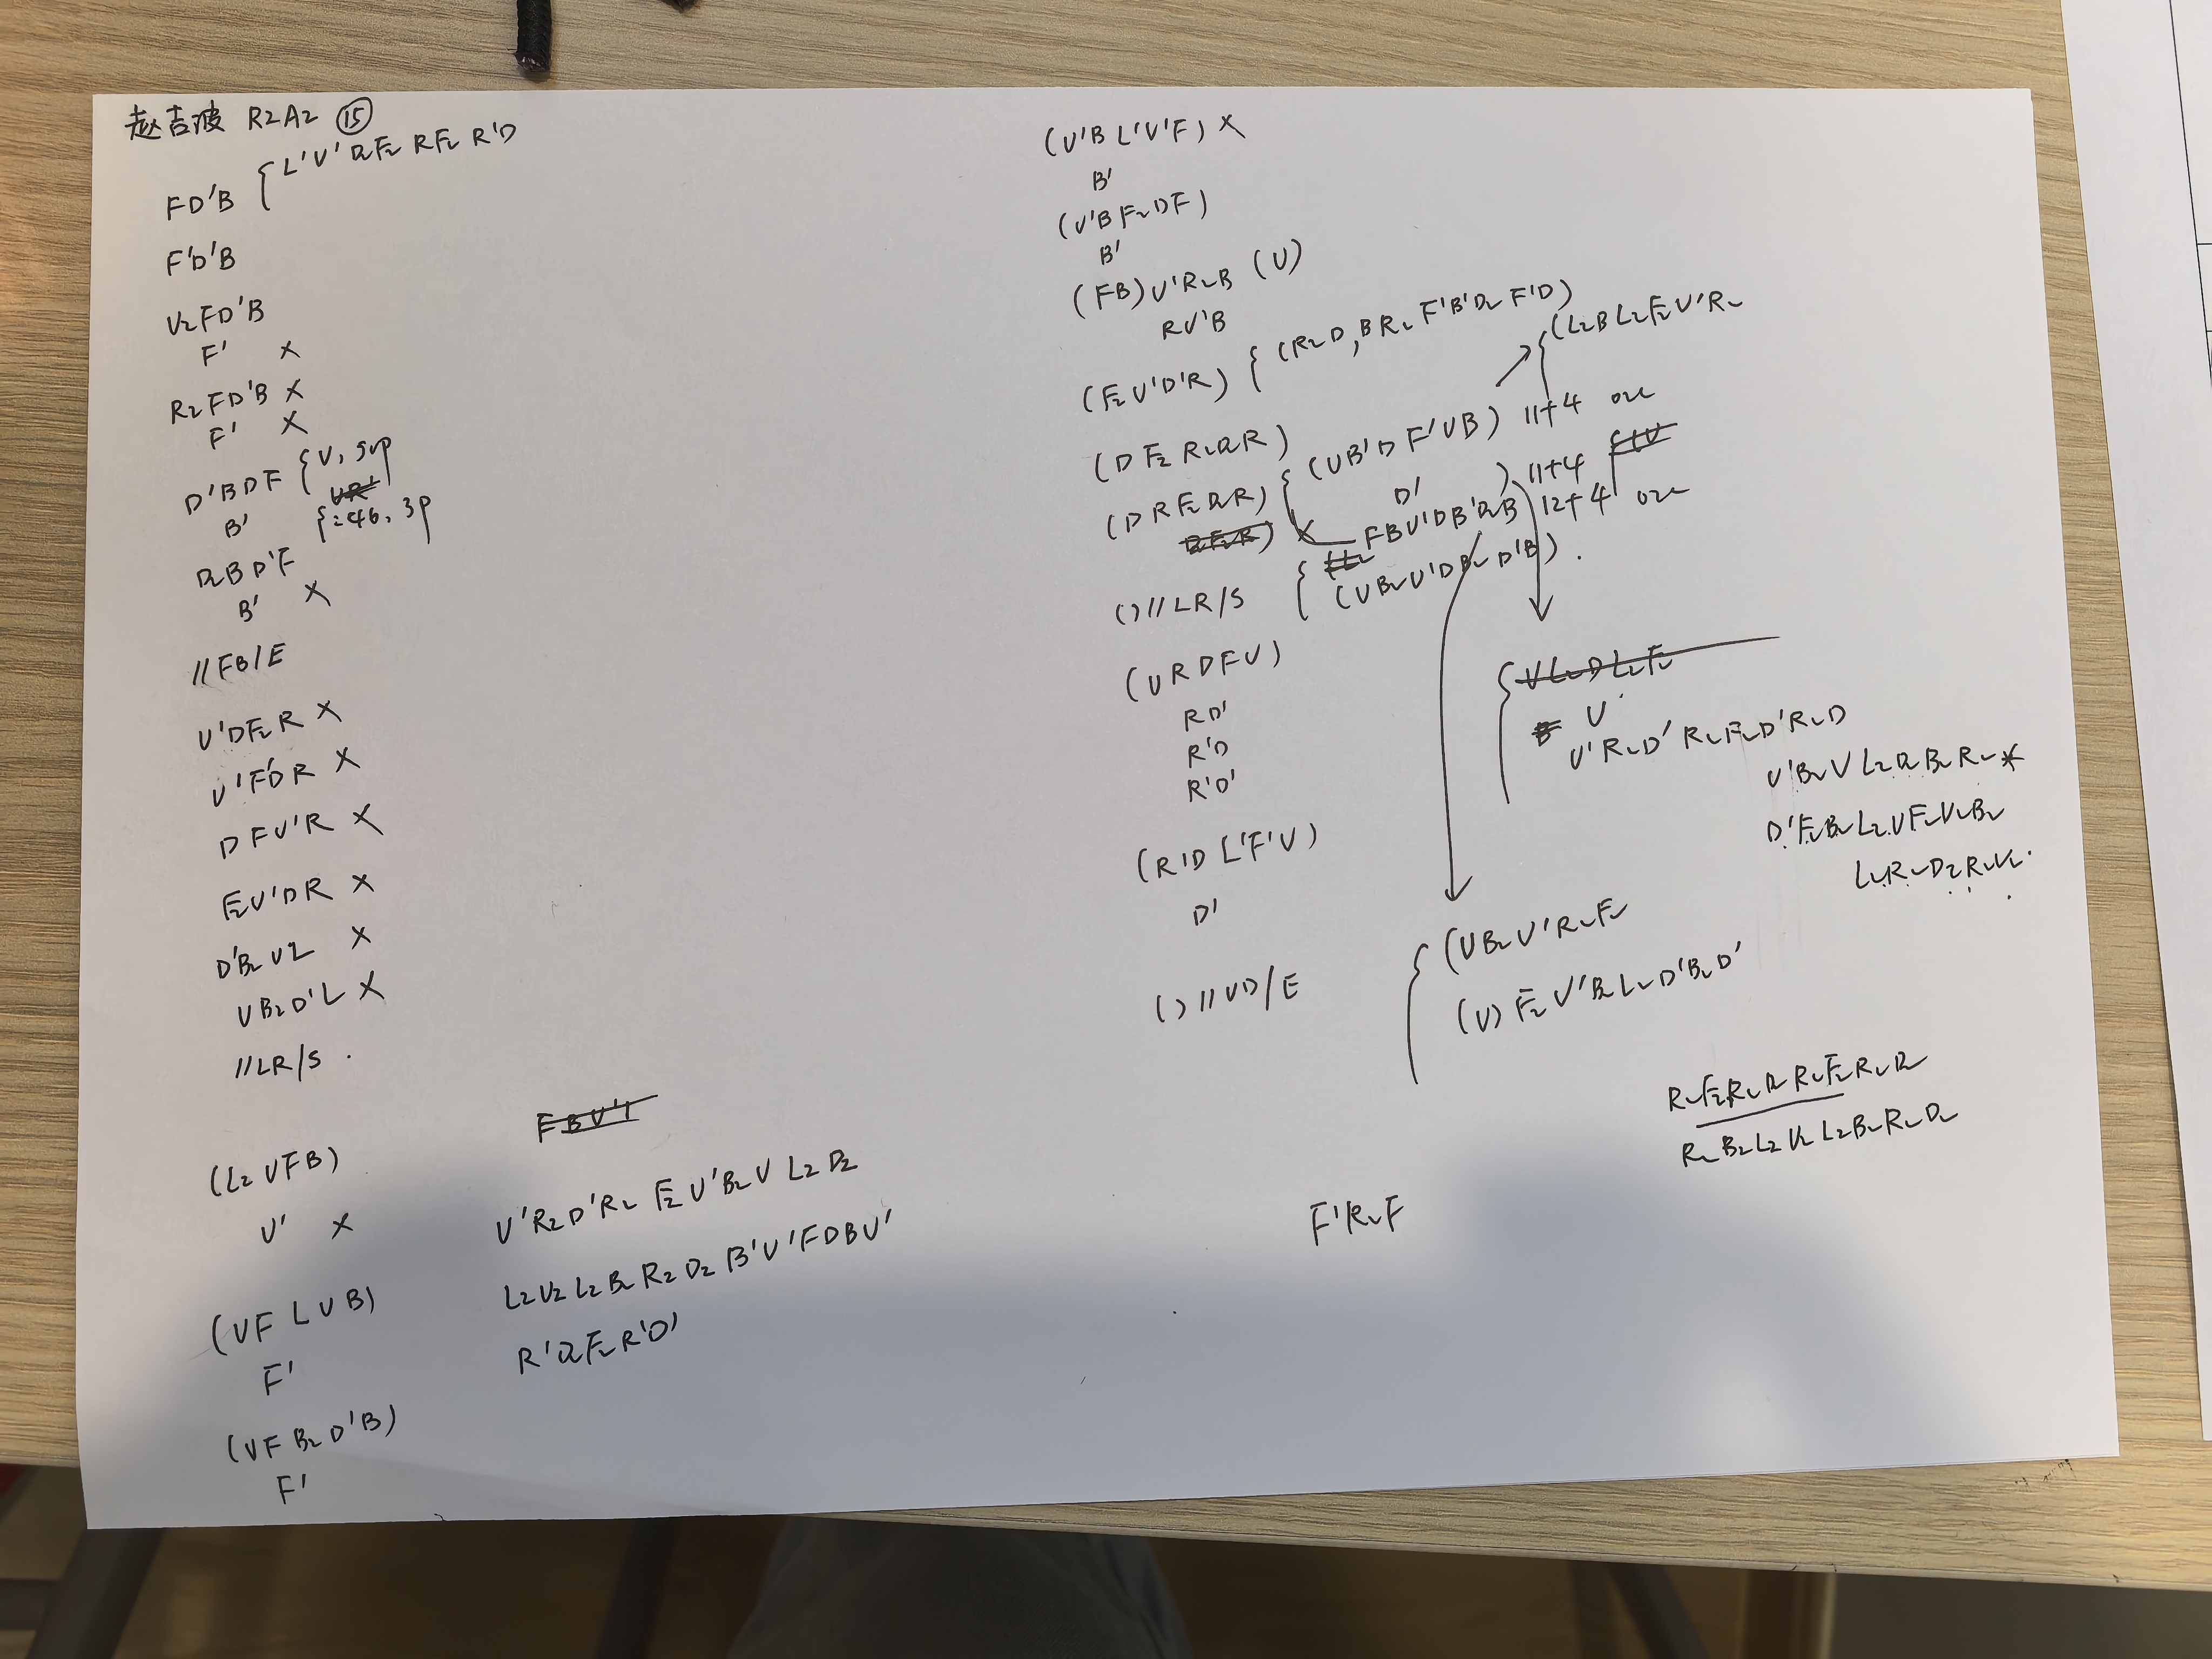 赵吉波 R2A2 ⑮
L'U'D2F2 RF2 R'D
FD'B
F'D'B
U2FD'B
F' ×
R2FD'B ×
F' ×
D'BDF { U, 5vp
B' 246, 3p
D2BD'F
B' ×
//FB/E
U'DF2R ×
U'F'DR ×
DFU'R ×
F2U'DR ×
D'B2UL ×
UB2D'L ×
//LR/S .
(L2UFB)
U' ×
(UFLUB)
F'
(UFB2D'B)
F'
U'R2D'R2 F2U'B2U L2D2
L2U2L2B2R2D2B'U'FDBU'
R'D2F2R'D'
(U'BL'U'F) ×
B'
(U'BF2DF)
B'
(FB)U'R2B (U)
RU'B
(F2U'D'R) { (R2D, BR2 F'B'D2 F'D)
(L2BL2F2U'R2
(DF2R2D2R)
(DRF2D2R) { (UB'DF'UB) 11+4
D' ) 11+4
× FBU'DB'D2B 12+4
()//LR/S { (UB2U'DB2D'B) .
(URDFU)
RD'
R'D
R'D'
(R'DL'F'U)
D'
()//UD/E
U'
U'R2D'R2F2D'R2D
U'B2UL2D2B2R2 *
D'F2B2L2UF2U2B2
L2R2D2R2U2
(UB2U'R2F2
(U)F2U'B2L2D'B2D'
R2F2R2D2R2F2R2D2
R2B2L2U2L2B2R2D2
F'R2F